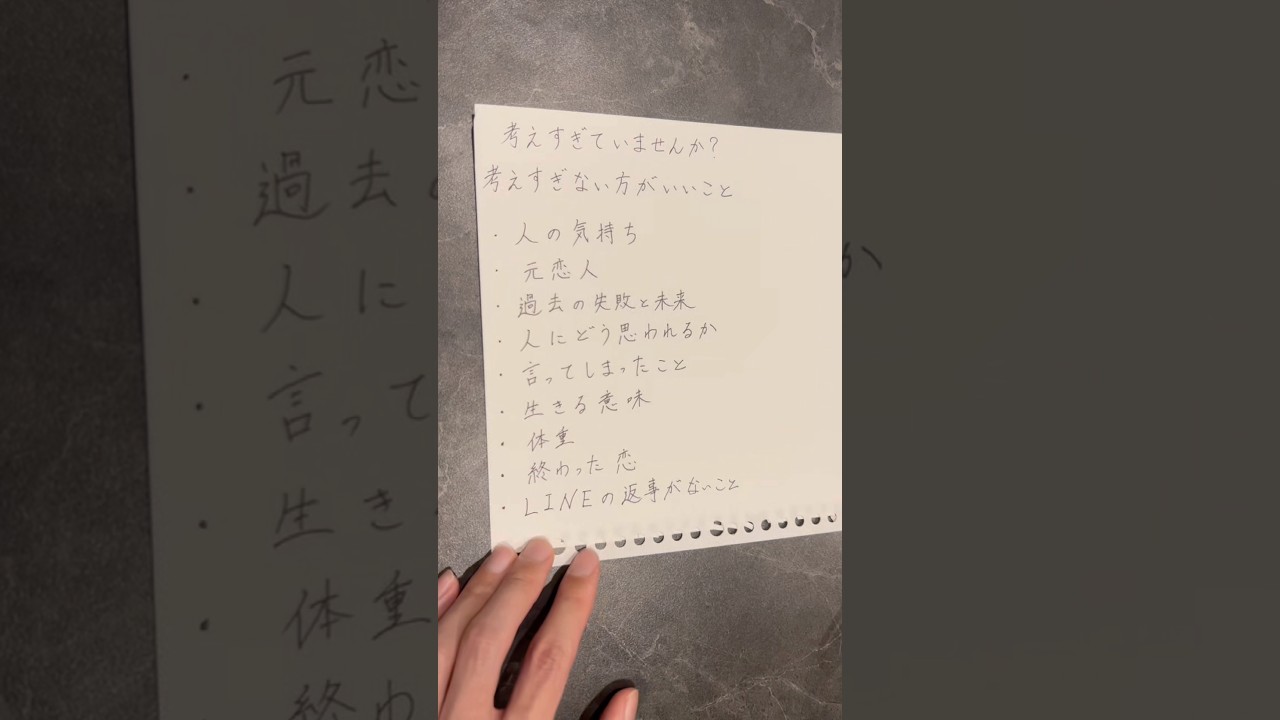 考えすぎていませんか?
考えすぎない方がいいこと
・人の気持ち
・元恋人
・過去の失敗と未来
・人にどう思われるか
・言ってしまったこと
・生きる意味
・体重
・終わった恋
・LINEの返事がないこと